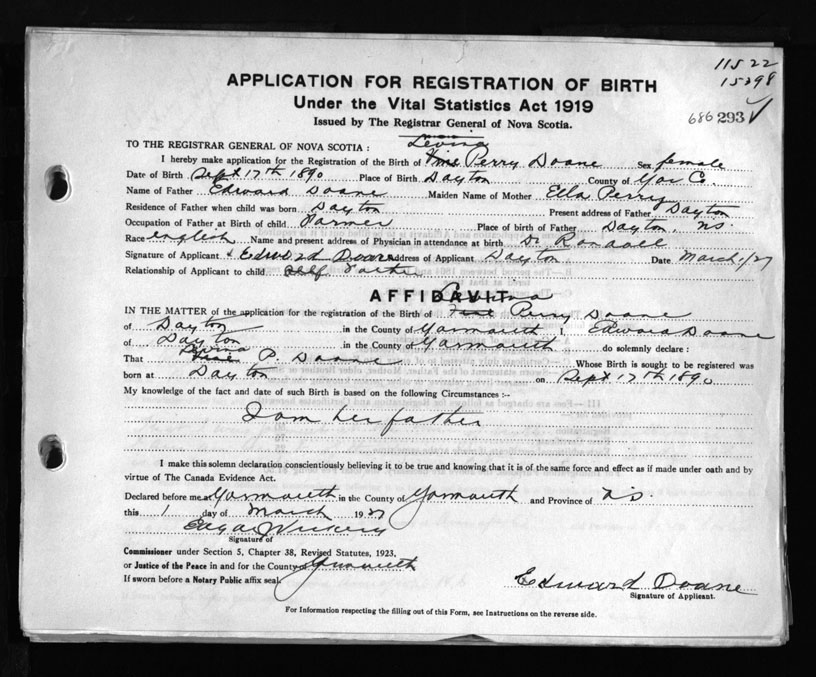 11522
15298
686 293
APPLICATION FOR REGISTRATION OF BIRTH
Under the Vital Statistics Act 1919
Issued by The Registrar General of Nova Scotia.
TO THE REGISTRAR GENERAL OF NOVA SCOTIA : Levina
I hereby make application for the Registration of the Birth of Perry Doane Sex female
Date of Birth Sept 17th 1890 Place of Birth Dayton County of Yar Co.
Name of Father Edward Doane Maiden Name of Mother Ella Perry
Residence of Father when child was born Dayton Present address of Father Dayton
Occupation of Father at Birth of child Farmer Place of birth of Father Dayton, NS.
Race english Name and present address of Physician in attendance at birth Dr Randall
Signature of Applicant Edward Doane Address of Applicant Dayton Date March 1/27
Relationship of Applicant to child self Father
AFFIDAVIT
IN THE MATTER of the application for the registration of the Birth of Perry Doane
of Dayton in the County of Yarmouth I, Edward Doane
of Dayton in the County of Yarmouth do solemnly declare :
That P. Doane Whose Birth is sought to be registered was
born at Dayton on Sept 17th 1890
My knowledge of the fact and date of such Birth is based on the following Circumstances :-
I am her father
I make this solemn declaration conscientiously believing it to be true and knowing that it is of the same force and effect as if made under oath and by
virtue of The Canada Evidence Act.
Declared before me at Yarmouth in the County of Yarmouth and Province of N.S.
this 1 day of March 1927
Edgar
Signature of
Commissioner under Section 5, Chapter 38, Revised Statutes, 1923,
or Justice of the Peace in and for the County of Yarmouth
If sworn before a Notary Public affix seal.
Edward Doane
Signature of Applicant.
For Information respecting the filling out of this Form, see Instructions on the reverse side.